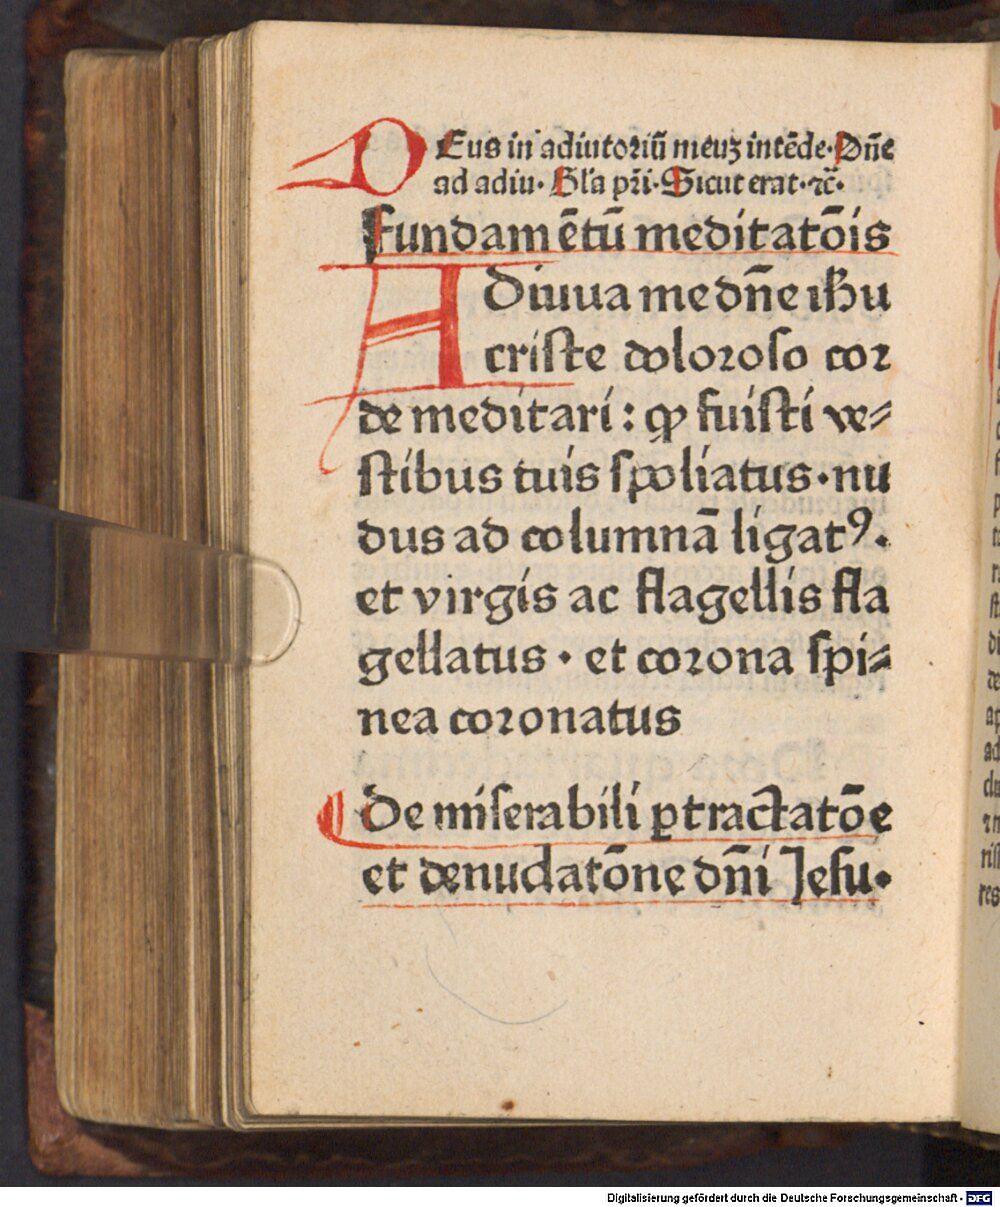 DEus in adiutoriū meuꝫ intēde. Dn̄e
ad adiu. Gl'a pr̄i. Sicut erat. ⁊c̄.
Fundamētū meditatōis
ADiuua me dn̄e ihũ
criste doloroso cor
de meditari : ꝙ fuisti ve⸗
stibus tuis spoliatus. nu
dus ad columnā ligatꝰ.
et virgis ac flagellis fla
gellatus. et corona spi⸗
nea coronatus
¶ De miserabili ꝑtractatōe
et denudatōne dn̄i Jesu.
Digitalisierung gefördert durch die Deutsche Forschungsgemeinschaft - DFG